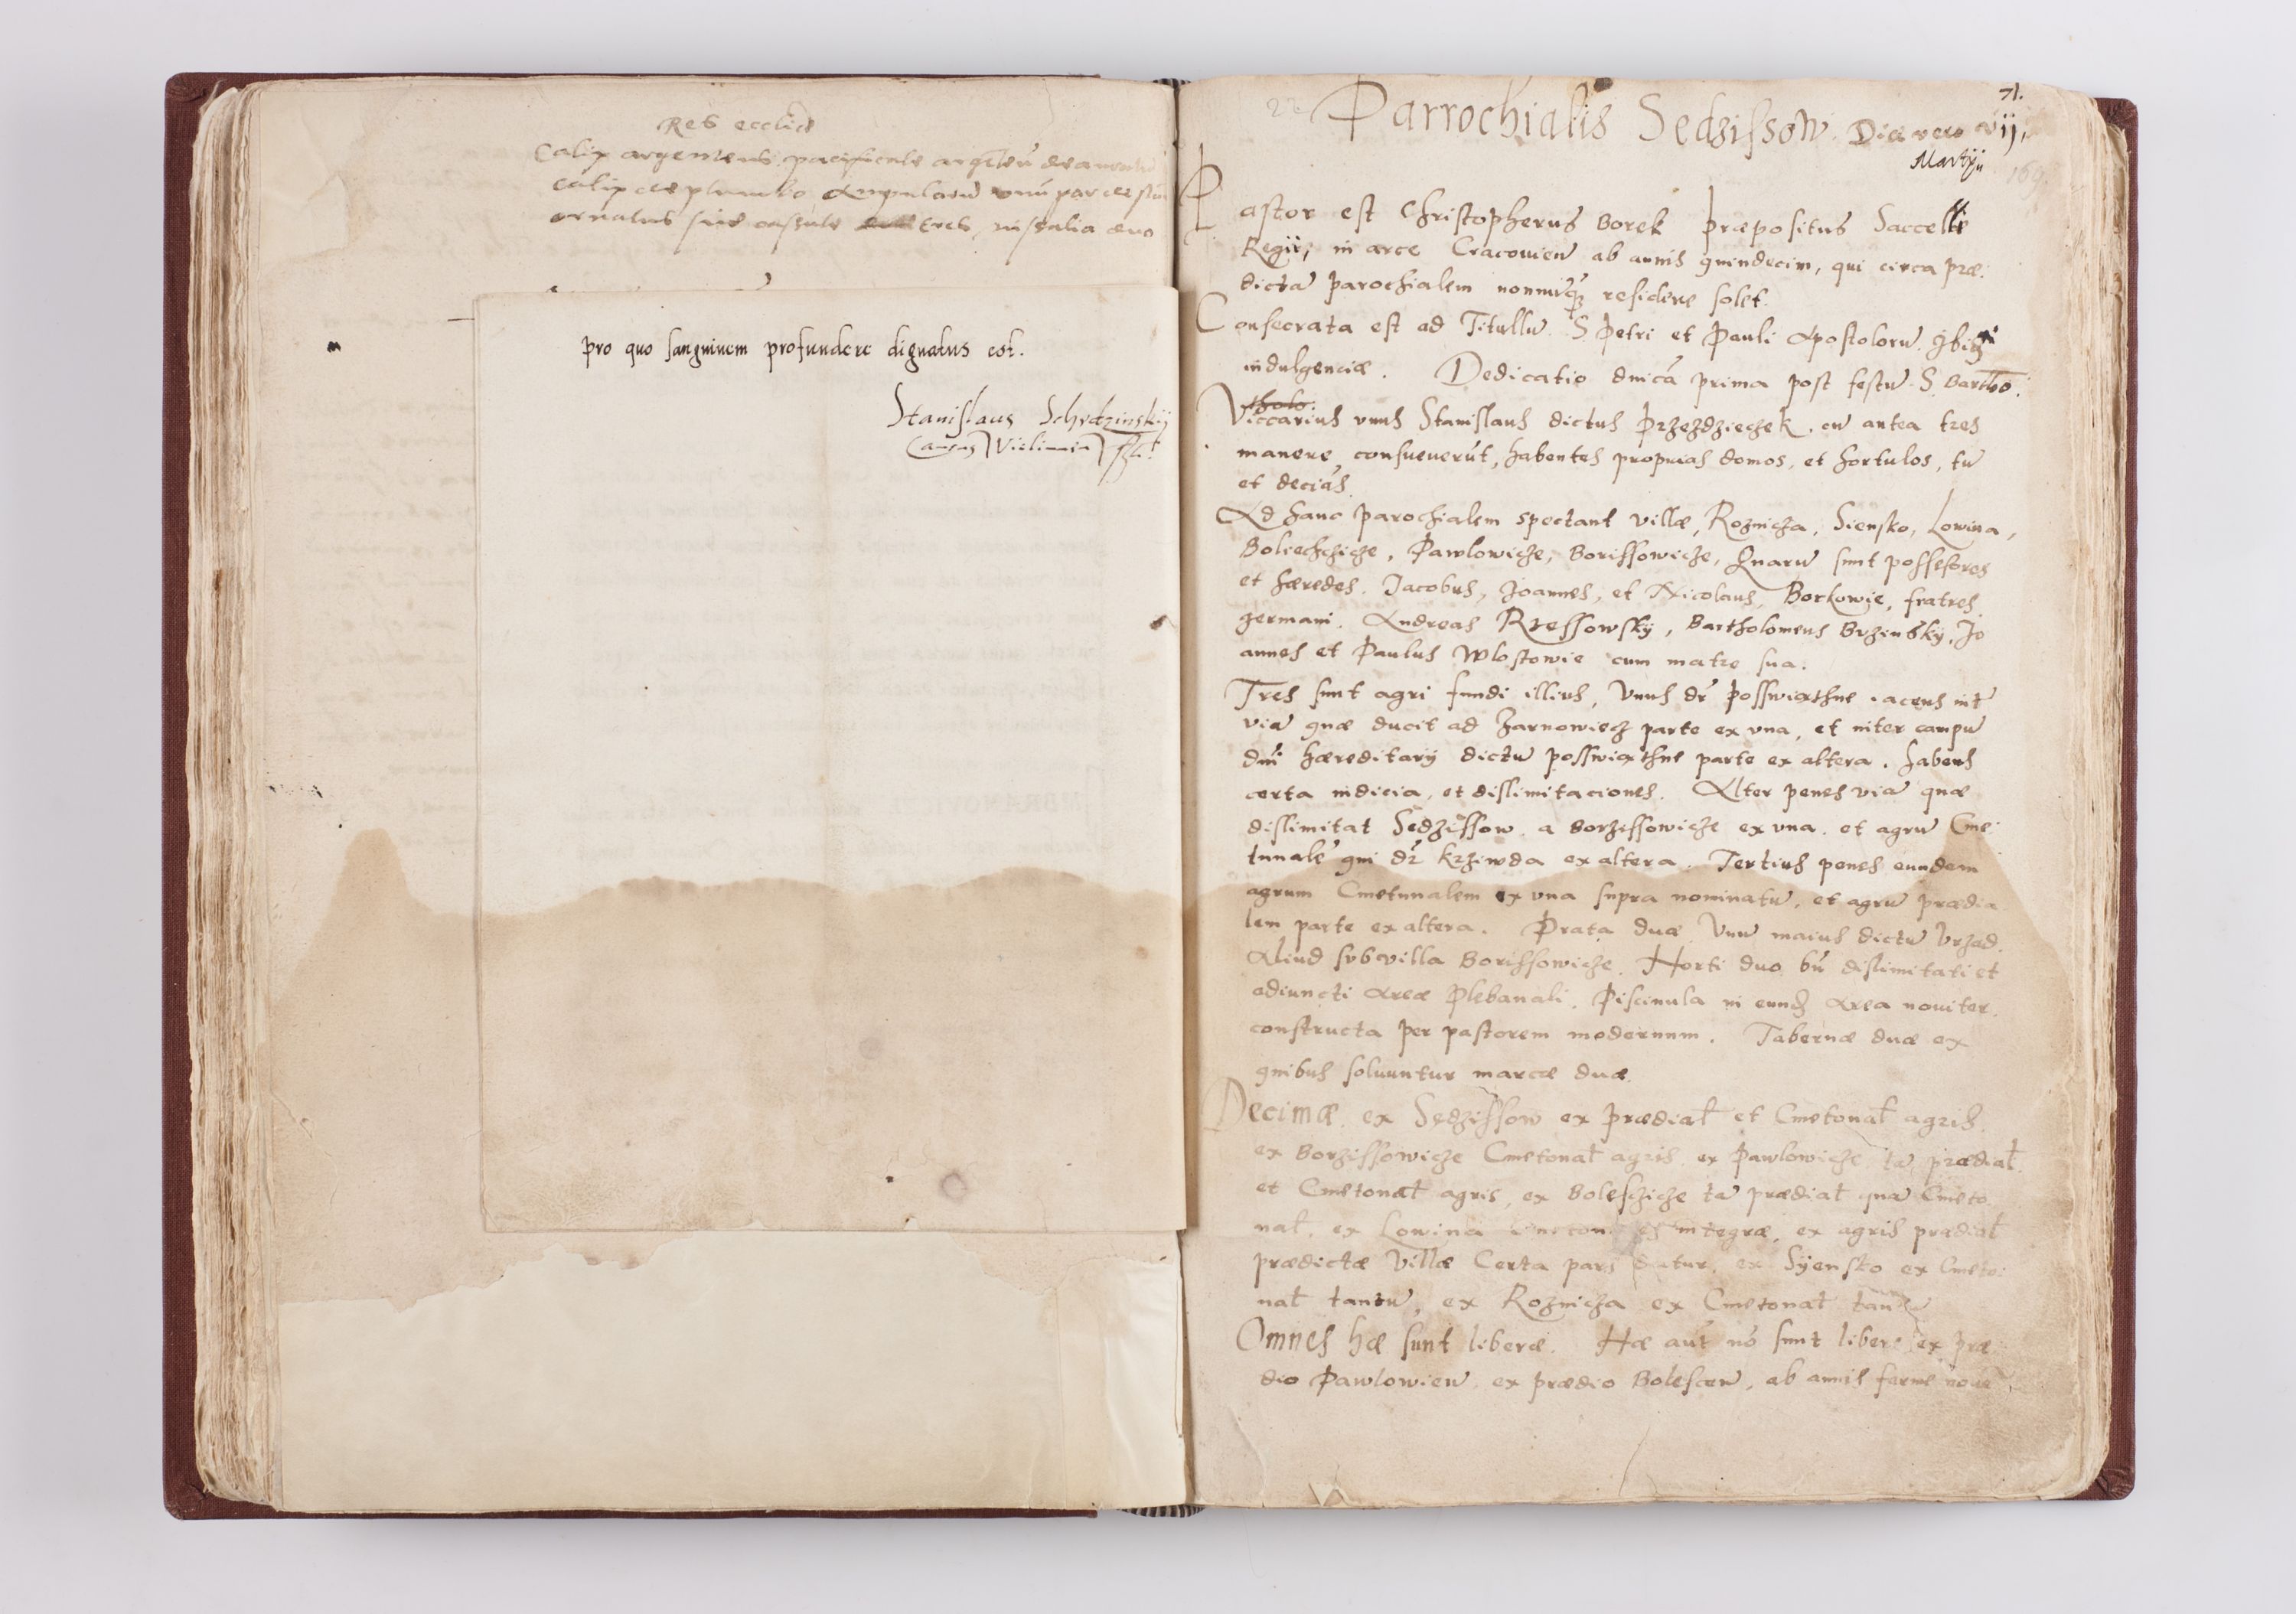 Res ecclie
Calix argenteus, pacificale
Calix
ornatus sive casule tres, missalia duo
pro quo sanguinem profundere dignatus est.
Stanislaus
71.
Parrochialis Sedzissow. Die vero vij,
Martij
Pastor est Christopherus Borek Præpositus Saccelli
Regij, in arce Cracouien ab annis quindecim, qui circa præ
dictã parochialem nonnũq residere solet.
Consecrata est ad Titullũ S. Petri et Pauli Apostolorũ. Ibiq
indulgenciæ. Dedicatio dnicã prima post festũ S. Bartho.
tholo
Viccarius vnus Stanislaus dictus Przezdzieczek, cũ antea tres
manere consueuerũt, habentes proprias domos, et hortulos, tũ
et deciãs.
Ad hanc parochialem spectant villæ, Roznicza, Siensko, Lowina,
Boleschzicze, Pawlowicze, Borissowicze, Quarũ sunt possessores
et hæredes. Jacobus, Joannes, et Nicolaus, Borkowie, fratres
germani. Andreas Rzessowsky, Bartholomeus Bvzensky, Jo
annes et Paulus Wlostowie cum matre sua.
Tres sunt agri fundi illius, Vnus dr Posswiathne iacens int
viã quæ ducit ad Zarnowiecz parte ex vna, et inter campũ
dni hæreditarij dictũ posswiathne parte ex altera. habens
certa indicia, et dislimitaciones. Alter penes viã quæ
dislimitat Sedzissow a Borzessowicze ex vna. et agrũ Cme
tunalẽ qui dr krziwda ex altera. Tertius penes eundem
agrum Cmetunalem ex vna supra nominatũ, et agrũ prædia
lem parte ex altera. Prata duæ. Vnũ maius dictũ Vrzad.
Aliud svb villa Borissowicze. Horti duo bñ dislimitati et
adiuncti Areæ Plebanali. Piscinula in eũdẽ Area nouiter
constructa per pastorem modernum. Tabernæ duæ ex
quibus soluuntur marcæ duæ.
Decimæ ex Sedzissow ex prædial et Cmetonal agris.
ex Borzissowicze Cmetonal agris ex Pawlowicze tã prædial
et Cmetonal agris, ex Boleschzicze tã prædial quã Cmeto
nal, ex Lowina integræ, ex agris prædial
prædictæ Villæ Certa pars datur, ex Syensko ex Cmeto
nal tantũ, ex Roznicza ex Cmetonal tantũ
Omnes hæ sunt liberæ. Hæ aũt nõ sunt libere ex præ
dio Pawlowien, ex prædio Bolescen, ab annis ferme noue